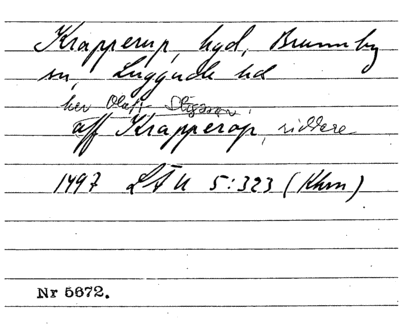 Krapperup, hgd, Brunnby
sn, Luggude hd
her Olaff Stigsson,
aff Krapperop, riddere
1497 LÅU 5:323 (Khm)
Nr 5672.